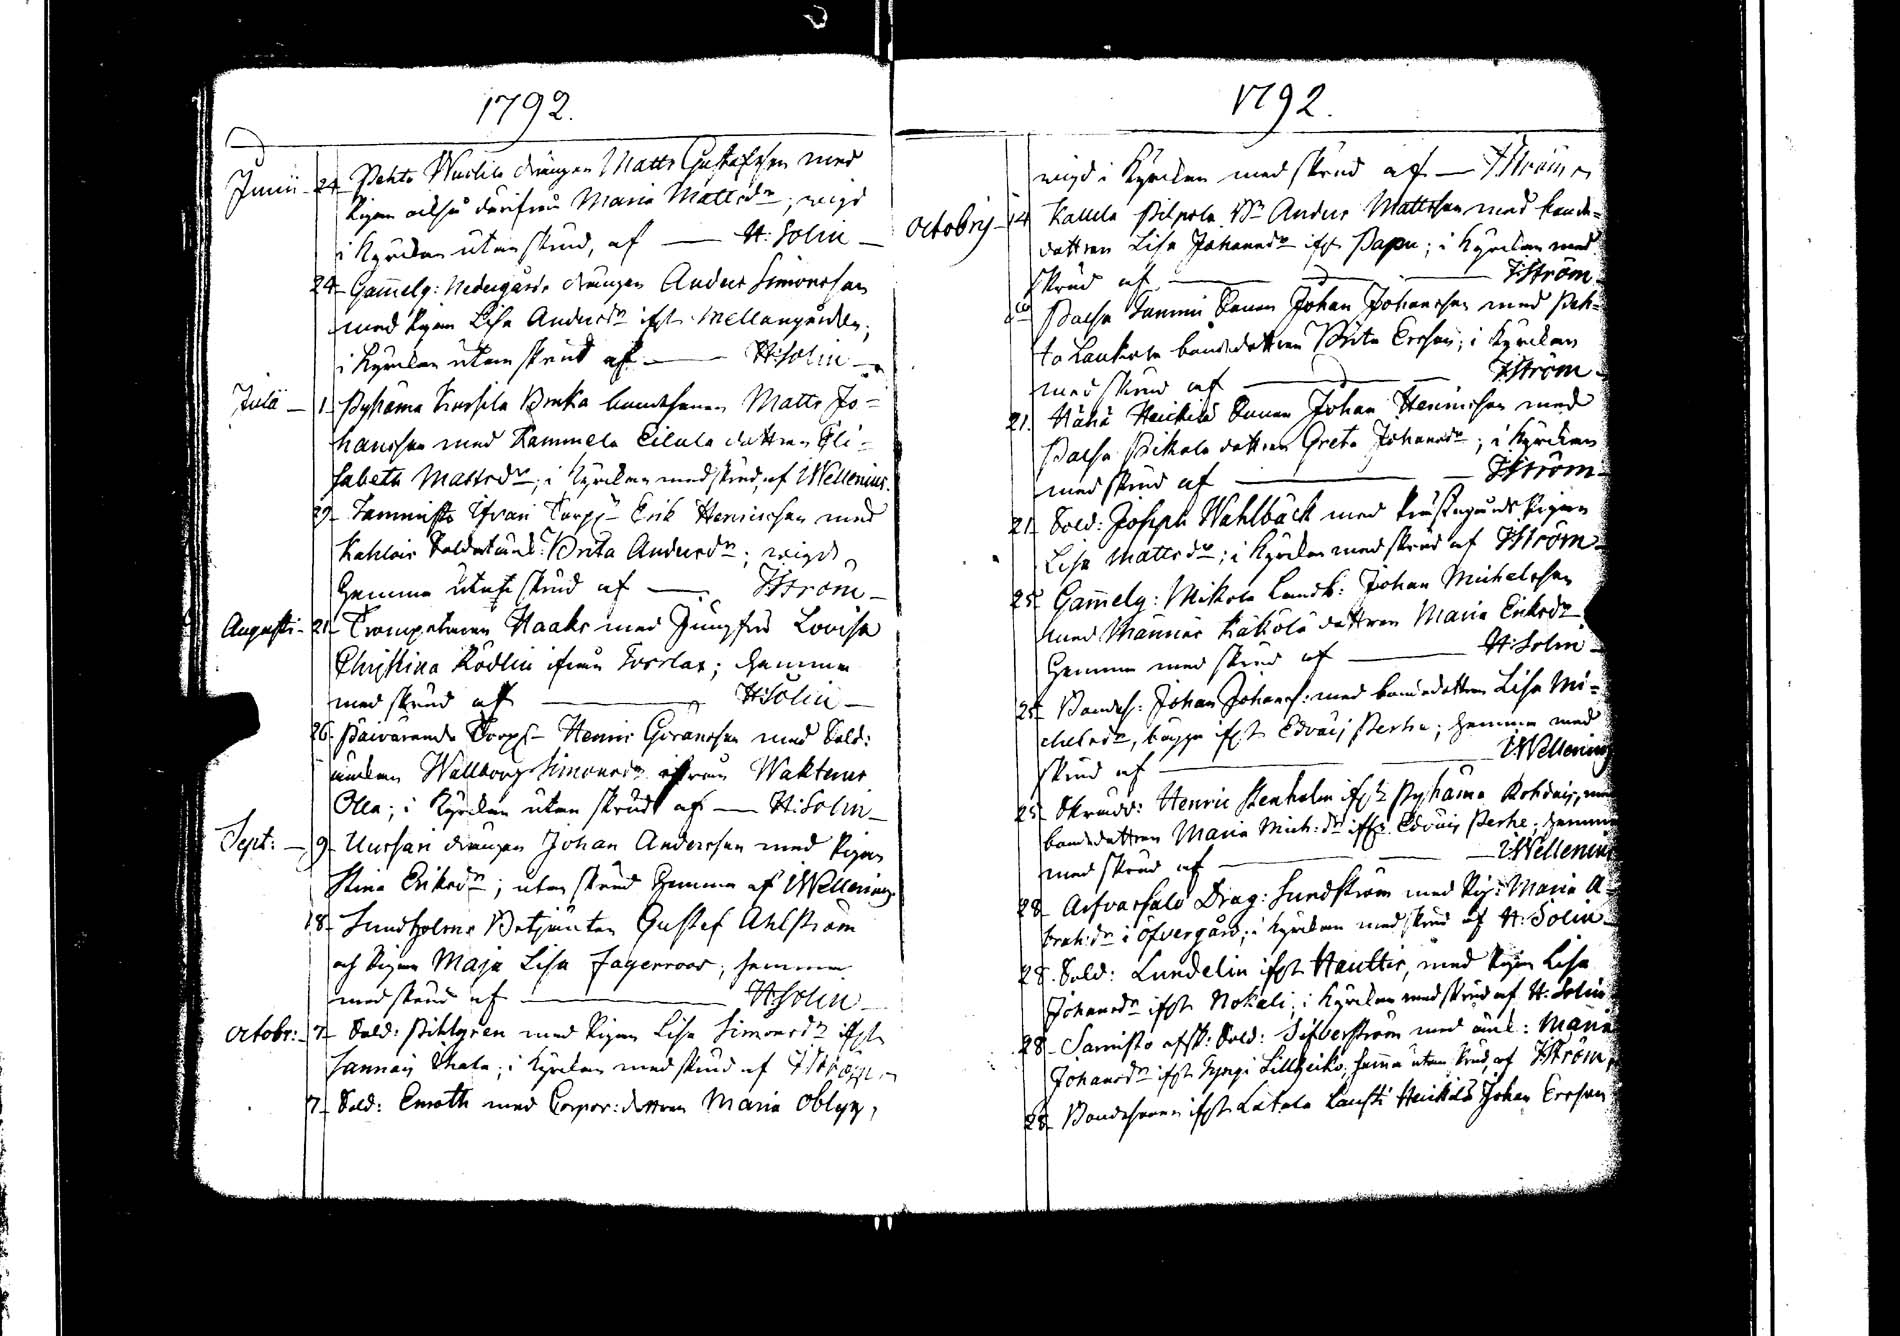 1792.
Junii 24 Pehto Wuolila drängen Matts Gustafsson med
Pigan också därifrån Maria Mattsdr; wigd
i Kyrckan utan skrud, af — H: Solin —
24 Gam̄elg: Nedergårds drängen Anders Simonsson
med Pigan Lisa Andersdr ifrån Mellangården;
i Kyrckan utan skrud af — H: Solin —
Julii — 1 Pyhäma Bondesonen Matts Jo=
hansson med Kammela Eilala dottren Eli=
sabeth Mattsdr; i Kyrckan med skrud, af IWellenius.
29 Tammisto Yfvari Torp: Erik Henricsson med
Kahlois Soldatänk: Brita Andersdr; wigd
hemma utan skrud af — IStröm —
Augusti — 21 Trompetaren Haaks med Jungfru Lovisa
Christina Rödlin ifrån; hemma
med skrud af — H: Solin —
26 Päiväranda Torp: Henric Göransson med Sold:
änckan Wallborg Simonsdr ifrån
Olla; i Kyrckan utan skrud af — H: Solin —
Sept: — 9 Uussari drängen Johan Andersson med Pigan
Stina Ericsdr; utan skrud hemma af IWellenius
18 Sundholms Betjänten Gustef Ahlström
och Pigan Maja Lisa Fagerroos; hemma
med skrud af — H: Solin —
Octobr: — 7 Sold: Pihlgren med Pigan Lisa Simonsdr ifrån
Sannais; i Kyrckan med skrud af IStröm
7 Sold: Enroth med Corpor: dottren Maria Oblyg,
1792.
wigd i Kyrckan med skrud af — IStröm
Octobrij — 14 Kallela Pilpola Bn Anders Mattsson med bonde=
dottren Lisa Johansdr ifrån Papu; i Kyrckan med
skrud af — IStröm —
do Palsa Tommi Sonen Johan Johansson med Peh=
to Laukola bondedottren Brita Ersson; i Kyrckan
med skrud af — IStröm —
21. Hähä Heickilä Sonen Johan Henricsson med
Palsa Pikala dottren Greta Johansdr; i Kyrckan
med skrud af — IStröm —
21 Sold: Joseph Wahlbäck med Prästegårds Pigan
Lisa Mattsdr; i Kyrckan med skrud af IStröm —
25 Gam̄elg: Mikola Landb: Johan Michelsson
med Männäs Käkölä dottren Maria Eriksdr
hemma med skrud af — H: Solin —
25 Bondes: Johan Johans: med bondedottren Lisa Mi=
chelsdr, bägge ifrån Edväis Perhe; hemma med
skrud af — IWellenius
25 Skräd: Henric Stenholm ifrån Pyhäma Rohdais, med
bondedottren Maria Mich:dr ifrån Edväis Perhe; hemma
med skrud af — IWellenius
28 Arfvassalo Drag: Sundström med Pig: Maria A=
brah:dr i Öfvergård; i Kyrckan med skrud af H: Solin —
28 Sold: Lundelin ifrån Haultis, med Pigan Lisa
Johansdr ifrån Nokali; i Kyrckan med skrud af H: Solin
28 Sarristo afsk: Sold: Silfverström med änk: Maria
Johansdr ifrån; hem̄a utan skrud, af IStröm
28 Bondesonen ifrån Laitala Heickilä Johan Ersson